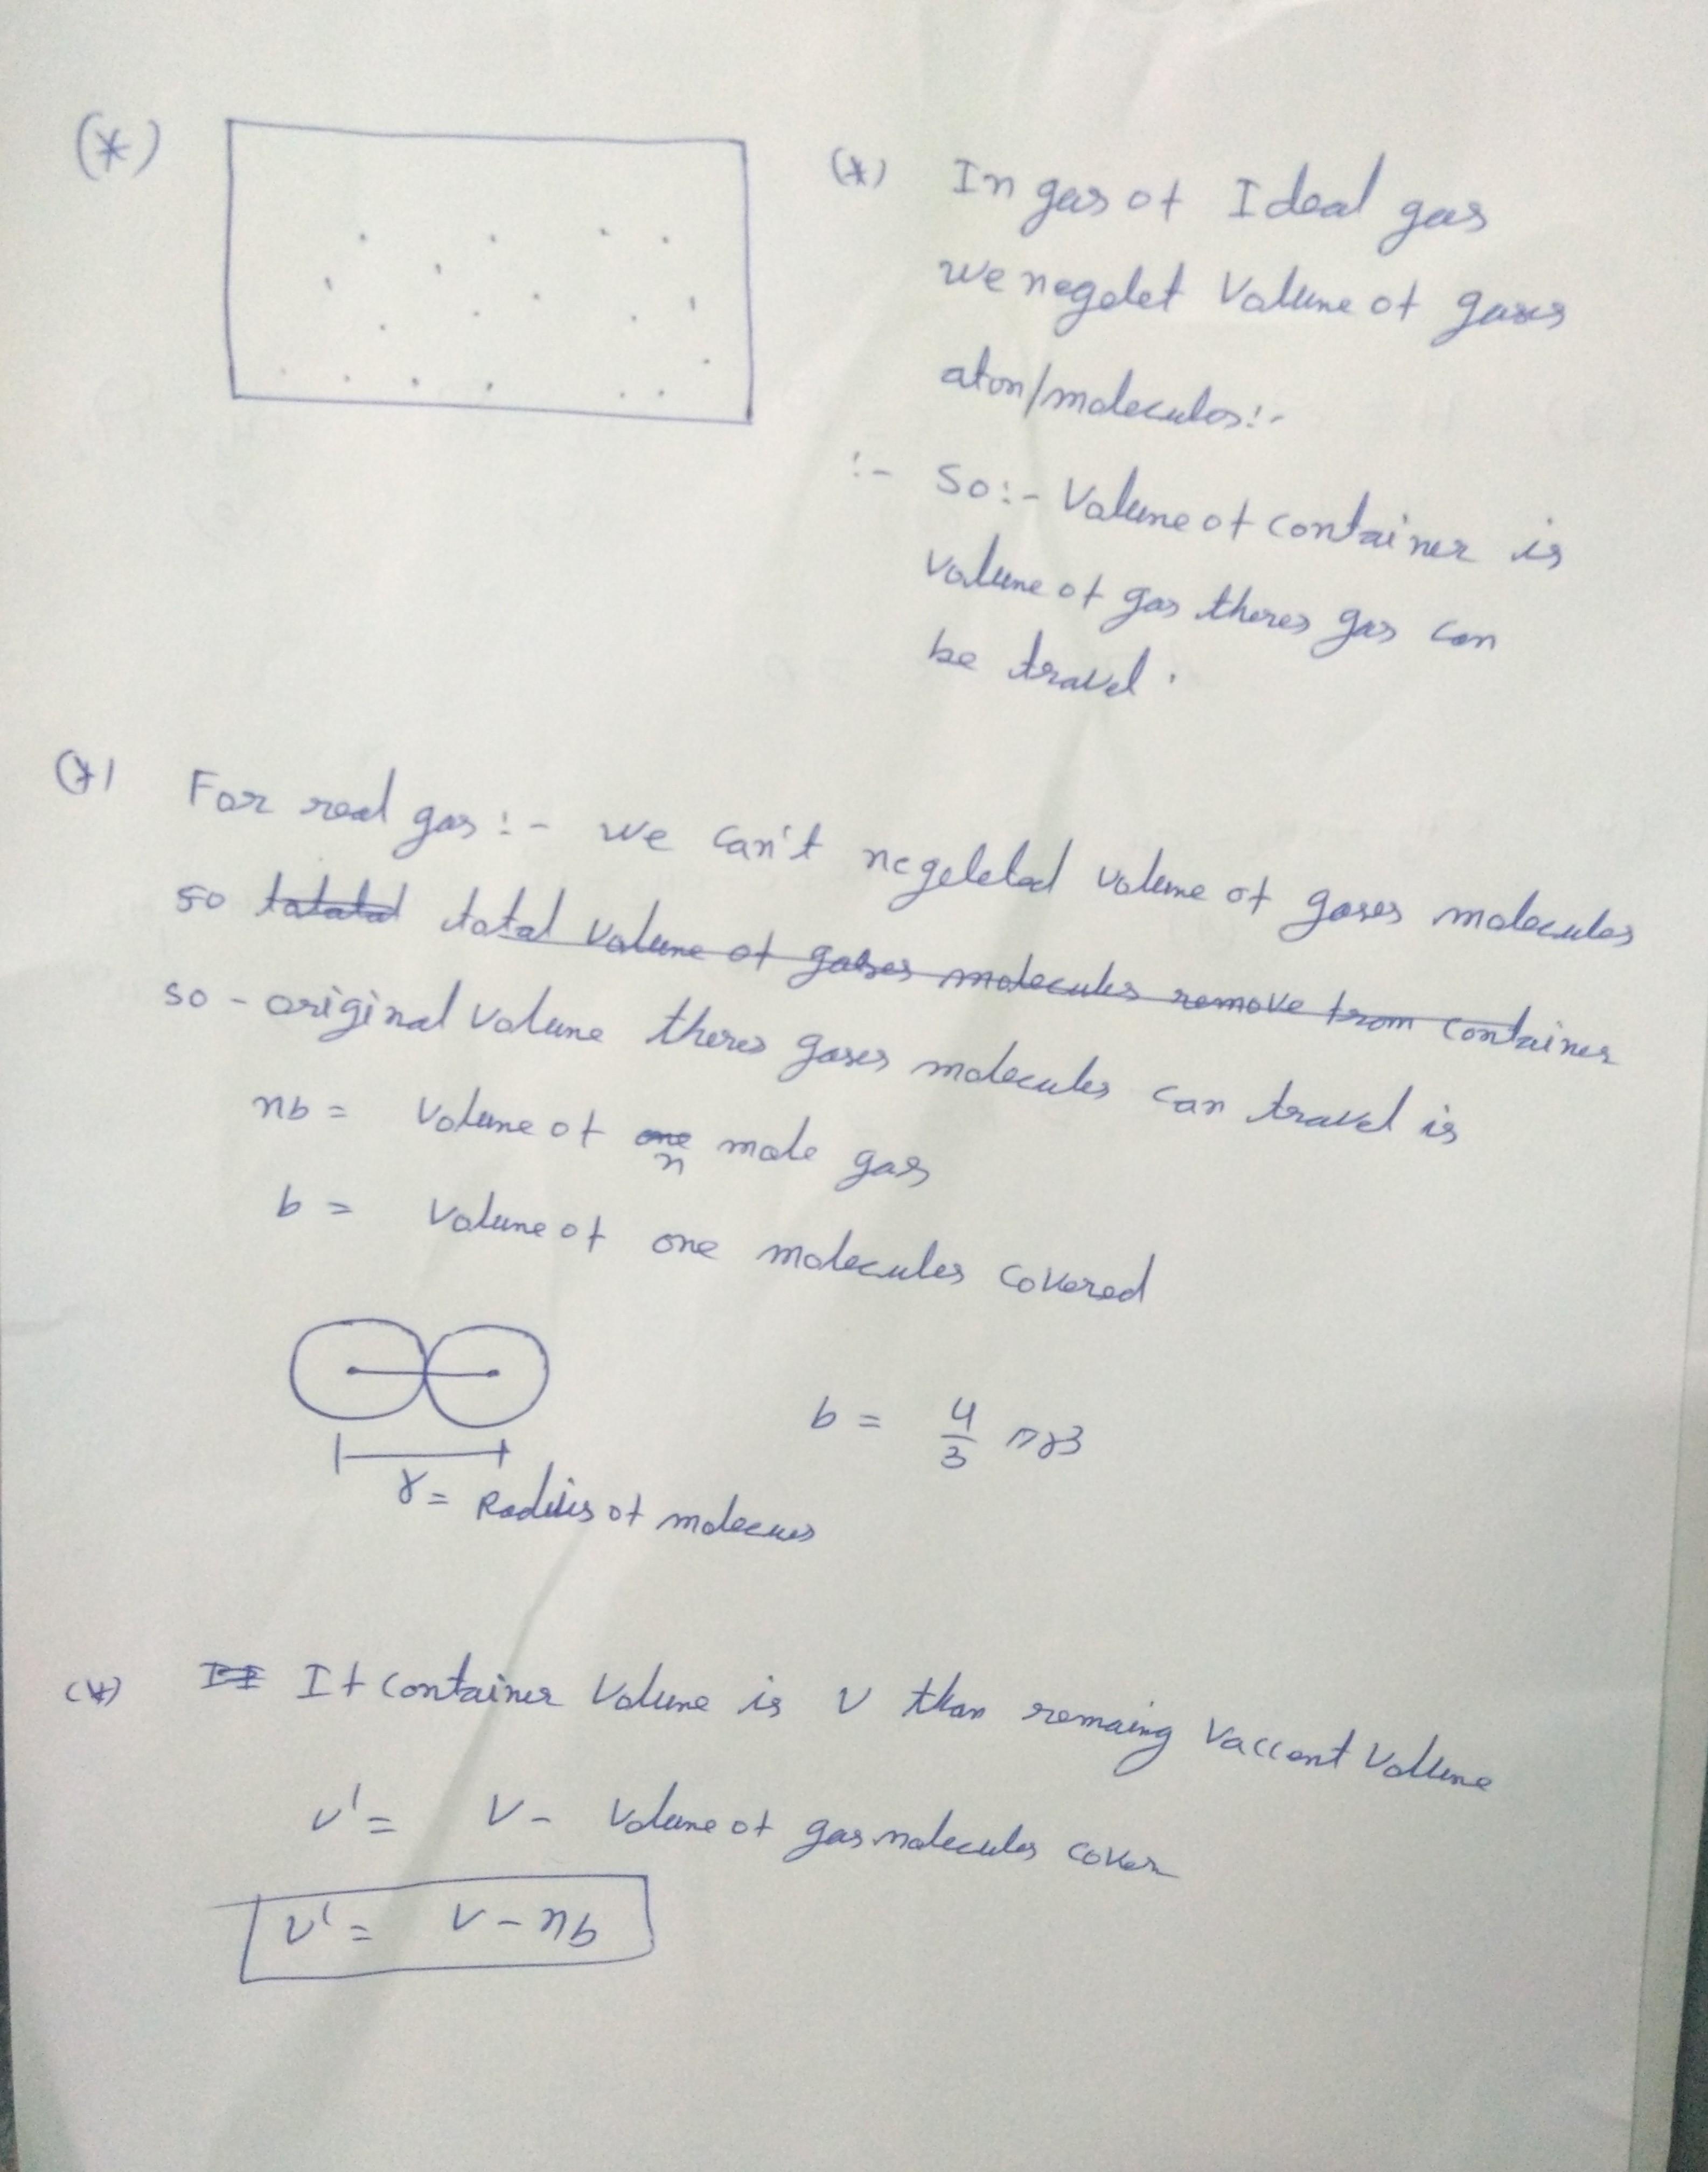 (*)
(*) In gas of Ideal gas
we negelet Volume of gases
atom/molecules:-
:- So:- Volume of container is
volume of gas theres gas can
be travel.
(*) For real gas :- we can't negeleted volume of gases molecules
so total volume of gases molecules remove from container
so - original volume theres gases molecules can travel is
nb = volume of one mole gas
n
b = volume of one molecules covered
b = 4/3 πr3
r = Radius of molecues
(*) If container Volume is V than remaing Vaccent Volume
v' = V - Volume of gas molecules cover
v' = V - nb